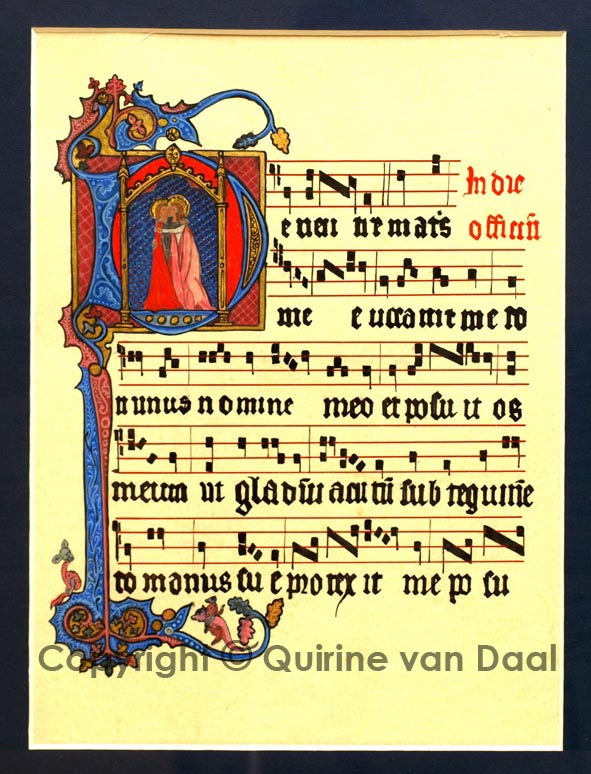 D e uen tir mat̄s In die
officiū
me e uocauit me do
minus nomine meo et posu it os
meum ut gladiū acutū sub tegumē
to manus su e protex it me po su
Copyright © Quirine van Daal